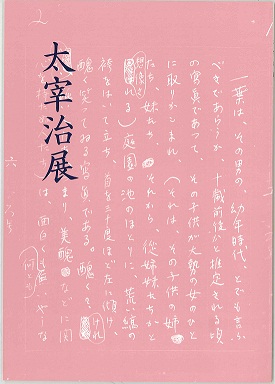 太宰治展
2
一葉は、その男の、幼年時代、とでも言ふ
べきであらうか、十歳前後かと推定される頃
の寫眞であつて、その子供が大勢の女のひと
に取りかこまれ、（それは、その子供の姉
たち、妹たち、それから、從姉妹たちかと
想像される）庭園の池のほとりに、荒い縞の
袴をはいて立ち、首を三十度ほど左に傾け、
醜く笑つてゐる寫眞である。醜く、けれ
まり、美醜などに関
は、面白くも何とも やうな